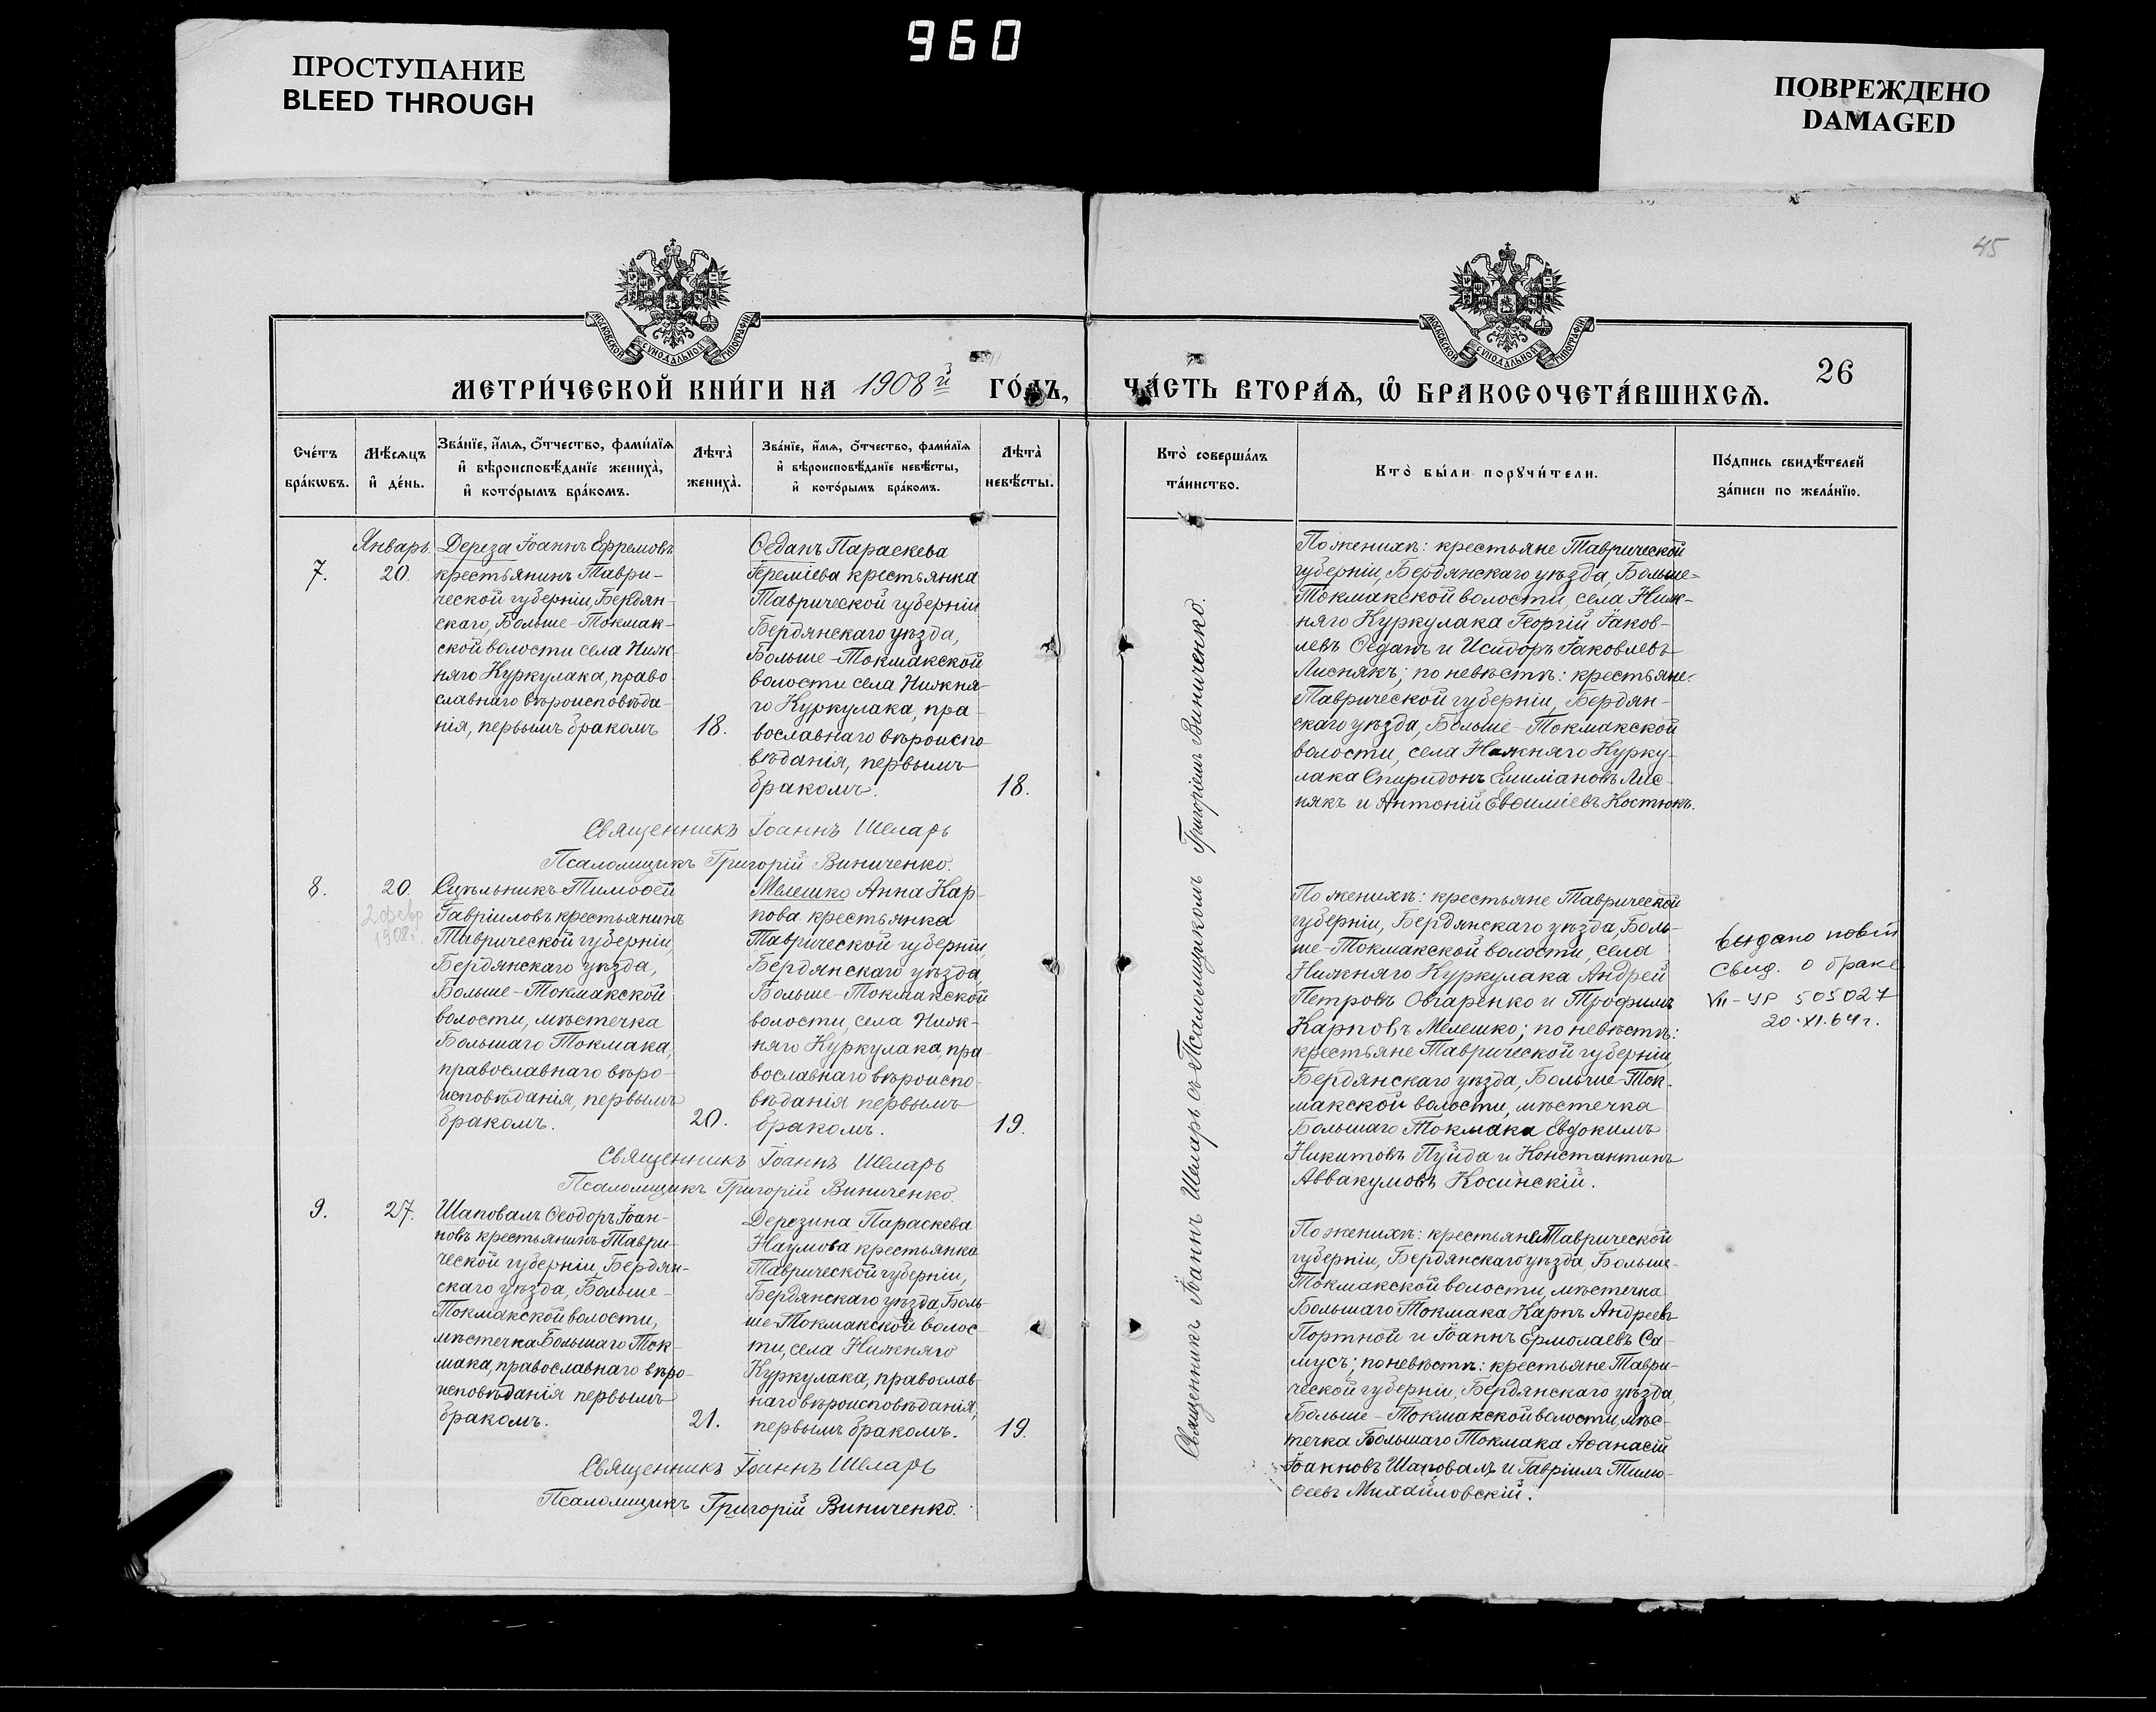 960
ПРОСТУПАНИЕ
BLEED THROUGH
ПОВРЕЖДЕНО
DAMAGED
45
26
МОСКОВСКОЙ СѴНОДАЛЬНОЙ ТИПОГРАФІИ
МОСКОВСКОЙ СѴНОДАЛЬНОЙ ТИПОГРАФІИ
МЕТРИ́ЧЕСКОЙ КНИ́ГИ НА 1908й ГО́ДЪ,
ЧА́СТЬ ВТОРА́Ѧ, Ѽ БРАКОСОЧЕТА́ВШИХСѦ.
Сче́тъ
бра́кѡвъ.
Мѣ́сѧцъ
и҆ де́нь.
Зва́нїе, и҆́мѧ, ѻ҆́тчество, фами́лїѧ
и҆ вѣроисповѣ́данїе жениха̀,
и҆ кото́рымъ бра́комъ.
Лѣта̀
жениха̀.
Зва́нїе, и҆́мѧ, ѻ҆́тчество, фами́лїѧ
и҆ вѣроисповѣ́данїе невѣ́сты,
и҆ кото́рымъ бра́комъ.
Лѣта̀
невѣ́сты.
Кто̀ соверша́лъ
та́инство.
Кто̀ бы́ли порꙋчи́тели.
По́дпись свидѣ́телей
за́писи по жела́нїю.
7.
Январь.
20.
Дереза Іоаннъ Ефремовъ
крестьянинъ Таври-
ческой губерніи, Бердян-
скаго, Больше-Токмак-
ской волости села Ниж-
няго Куркулака, право-
славнаго вѣроисповѣда-
нія, первымъ бракомъ
18.
Ѳеданъ Параскева
Іереміева крестьянка
Таврической губерніи
Бердянскаго уѣзда,
Больше-Токмакской
волости села Нижня-
го Куркулака, пра-
вославнаго вѣроиспо-
вѣданія, первымъ
бракомъ.
18.
По женихѣ: крестьяне Таврической
губерніи, Бердянскаго уѣзда, Больше-
Токмакской волости, села Ниж-
няго Куркулака Георгій Іаков-
левъ Ѳеданъ и Исидоръ Іаковлевъ
Лиснякъ; по невѣстѣ: крестьяне
Таврической губерніи, Бердян-
скаго уѣзда, Больше-Токмакской
волости, села Нижняго Курку-
лака Спиридонъ Емиліановъ Лис-
някъ и Антоній Евѳиміевъ Костюкъ.
Священникъ Іоаннъ Шеларь
Псаломщикъ Григорій Виниченко.
8.
20.
2 февр
1908г.
Сцѣльникъ Тимоѳей
Гавріиловъ крестьянинъ
Таврической губерніи,
Бердянскаго уѣзда,
Больше-Токмакской
волости, мѣстечка
Большаго Токмака,
православнаго вѣро-
исповѣданія, первымъ
бракомъ.
20.
Мелешко Анна Кар-
пова крестьянка
Таврической губерніи,
Бердянскаго уѣзда,
Больше-Токмакской
волости, села Ниж-
няго Куркулака, пра-
вославнаго вѣроиспо-
вѣданія первымъ
бракомъ.
19.
По женихѣ: крестьяне Таврической
губерніи, Бердянскаго уѣзда, Боль-
ше-Токмакской волости, села
Нижняго Куркулака Андрей
Петровъ Овчаренко и Трофимъ
Карповъ Мелешко; по невѣстѣ:
крестьяне Таврической губерніи,
Бердянскаго уѣзда, Больше-Ток-
макской волости, мѣстечка
Большаго Токмака Евдокимъ
Никитовъ Пуйда и Константинъ
Аввакумовъ Косинскій.
выдано повій
свид. о браке
VII-УР 505027
20.XI.64г.
Священникъ Іоаннъ Шеларь
Псаломщикъ Григорій Виниченко.
9.
27.
Шаповалъ Ѳеодоръ Іоан-
новъ крестьянинъ Таври-
ческой губерніи, Бердян-
скаго уѣзда, Больше-
Токмакской волости,
мѣстечка Большаго Ток-
мака, православнаго вѣро-
исповѣданія первымъ
бракомъ.
21.
Дерезина Параскева
Наумова крестьянка
Таврической губерніи,
Бердянскаго уѣзда, Боль-
ше-Токмакской волос-
ти, села Нижняго
Куркулака, православ-
наго вѣроисповѣданія,
первымъ бракомъ.
19.
По женихѣ: крестьяне Таврической
губерніи, Бердянскаго уѣзда, Больше-
Токмакской волости, мѣстечка
Большаго Токмака Карпъ Андреевъ
Портной и Іоаннъ Ермолаевъ Са-
мусъ; по невѣстѣ: крестьяне Таври-
ческой губерніи, Бердянскаго уѣзда,
Больше-Токмакской волости, мѣс-
течка Большаго Токмака Аѳанасій
Іоанновъ Шаповалъ и Гавріилъ Тимо-
ѳеевъ Михайловскій.
Священникъ Іоаннъ Шеларь
Псаломщикъ Григорій Виниченко.
Священникъ Іоаннъ Шеларь съ Псаломщикомъ Григоріемъ Виниченко.